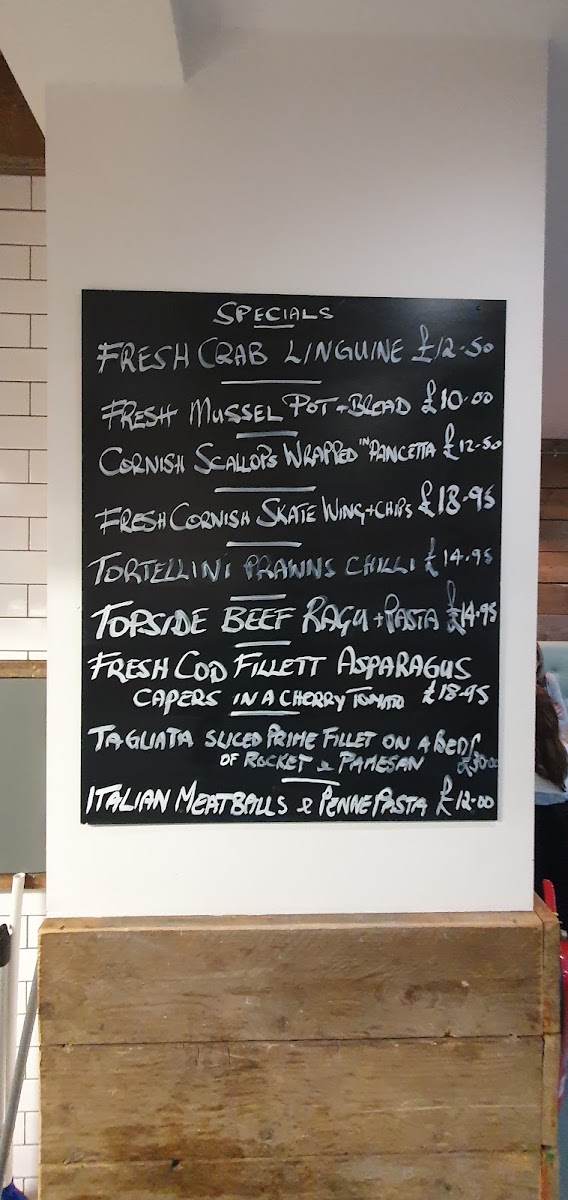 SPECIALS
FRESH CRAB LINGUINE £12.50
FRESH MUSSEL POT + BREAD £10.00
CORNISH SCALLOPS WRAPPED IN PANCETTA £12.50
FRESH CORNISH SKATE WING + CHIPS £18.95
TORTELLINI PRAWNS CHILLI £14.95
TOPSIDE BEEF RAGU + PASTA £14.95
FRESH COD FILLETT ASPARAGUS
CAPERS IN A CHERRY TOMATO £18.95
TAGLIATA SLICED PRIME FILLET ON A BED
OF ROCKET & PAMESAN £30.00
ITALIAN MEATBALLS & PENNE PASTA £12.00